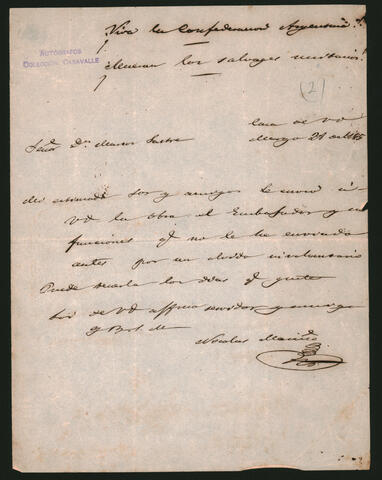 Viva la Confederacion Argentina!
Mueran los salvages unitarios!
AUTÓGRAFOS
COLECCIÓN CASAVALLE
(2)
Casa de Vd
Marzo 21 de
Señor Dn Marcos Sastre
Mi estimado Sor y amigo le envio á
Vd la obra el Embajador y sus
funciones qe no le he enviado
antes por un olvido involuntario
Puede usarla los dias qe guste
de Vd affmo servidor y amigo
q B s m
Nicolas Mariño